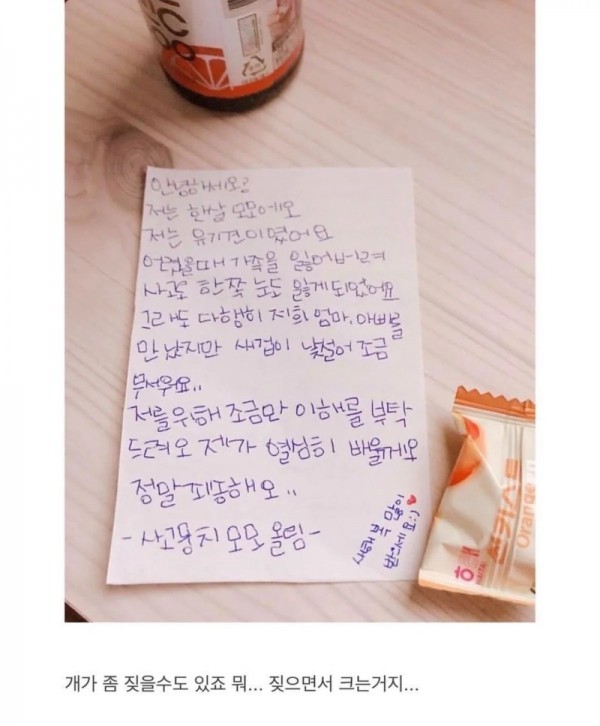 안녕하세요?
저는 한살 모모에오
저는 유기견이였어요
어렸을때 가족을 잃어버려
사고로 한쪽 눈도 잃게되었어요
그래도 다행히 저희 엄마, 아빠를
만났지만 새집이 낯설어 조금
무서워요..
저를위해 조금만 이해를 부탁
드려요 제가 열심히 배울게요
정말 죄송해오..
-사고뭉치 모모 올림-
해태
썬키스트
Orange
개가 좀 짖을수도 있죠 뭐... 짖으면서 크는거지...